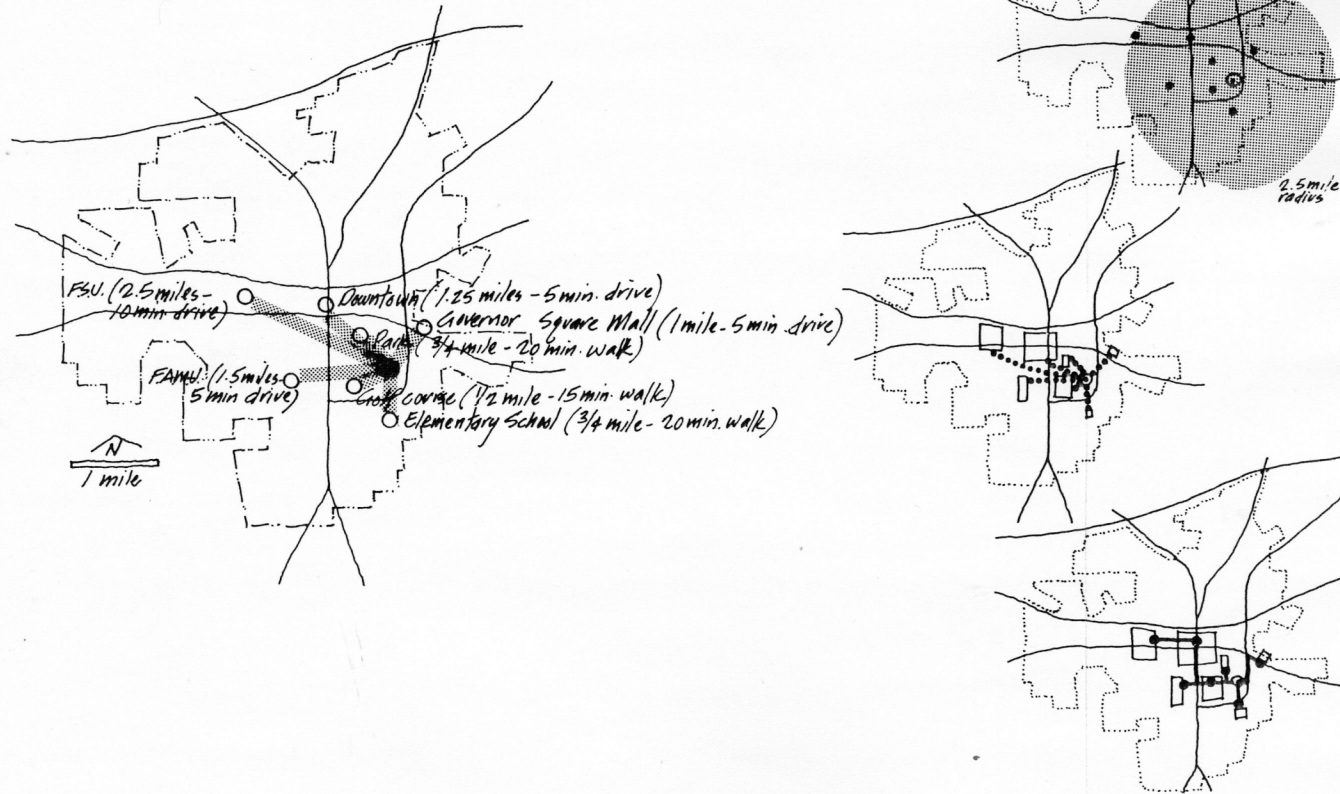 2.5 mile
radius
F.S.U. (2.5 miles-
10 min. drive)
Downtown (1.25 miles - 5 min. drive)
Governor Square Mall (1 mile - 5 min. drive)
Park (3/4 mile - 20 min. walk)
FAMU (1.5 miles-
5 min drive)
Golf course (1/2 mile - 15 min. walk)
Elementary School (3/4 mile - 20 min. walk)
N
1 mile